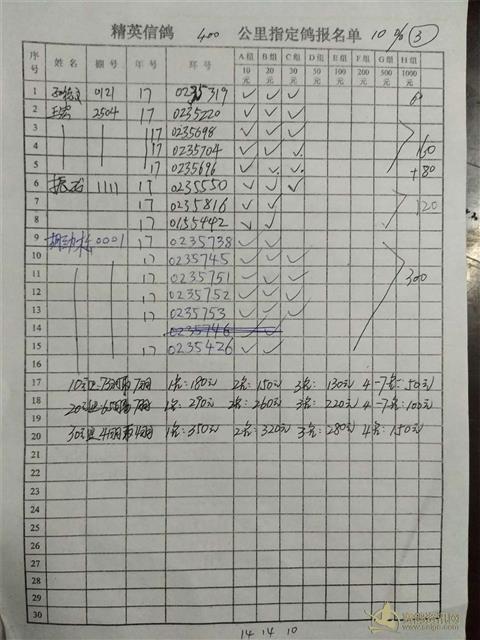 精英信鸽 400 公里指定鸽报名单 10% ③
序号 姓名 棚号 年号 环号 A组10元 B组20元 C组30元 D组50元 E组100元 F组200元 G组500元 H组1000元
1 0121 17 0235319 ✓ ✓ ✓
2 2504 17 0235220 ✓ ✓ ✓
3 17 0235698 ✓ ✓ ✓
4 17 0235704 ✓ ✓ ✓ 160
5 17 0235696 ✓ ✓ ✓ +80
6 1111 17 0235550 ✓ ✓ ✓
7 17 0235816 ✓ ✓ 120
8 17 0155442 ✓ ✓
9 0001 17 0235738 ✓ ✓
10 17 0235745 ✓ ✓ ✓
11 17 0235751 ✓ ✓ ✓ 300
12 17 0235752 ✓ ✓ ✓
13 17 0235753 ✓ ✓ ✓
14 0235746 ✓
15 17 0235426 ✓ ✓
16
17 1名:180元 2名:150元 3名:130元 4-7名:50元
18 1名:290元 2名:260元 3名:220元 4-7名:100元
19
20 1名:350元 2名:320元 3名:280元 4名:150元
21
22
23
24
25
26
27
28
29
30
14 14 10